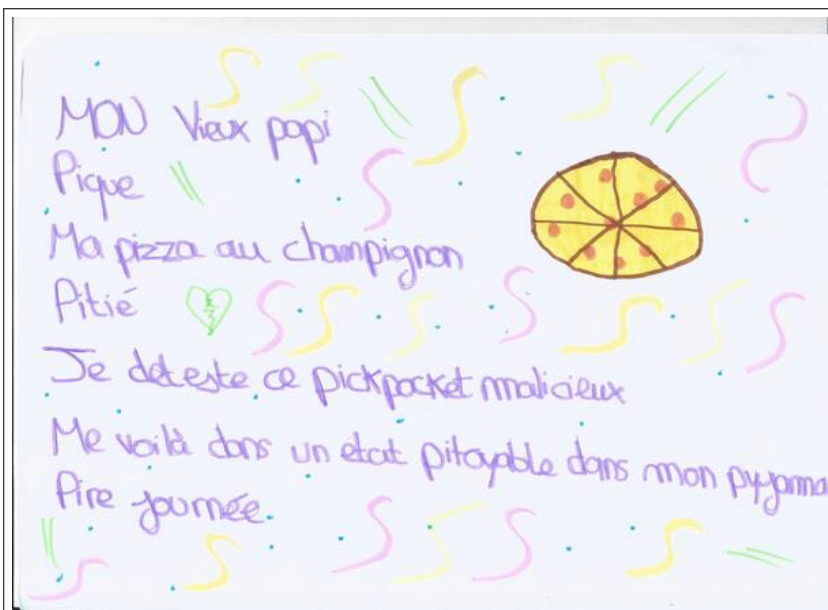 MON Vieux papi
Pique
Ma pizza au champignon
Pitié
Je déteste ce pickpocket malicieux
Me voilà dans un état pitoyable dans mon pyjama
Pire journée.